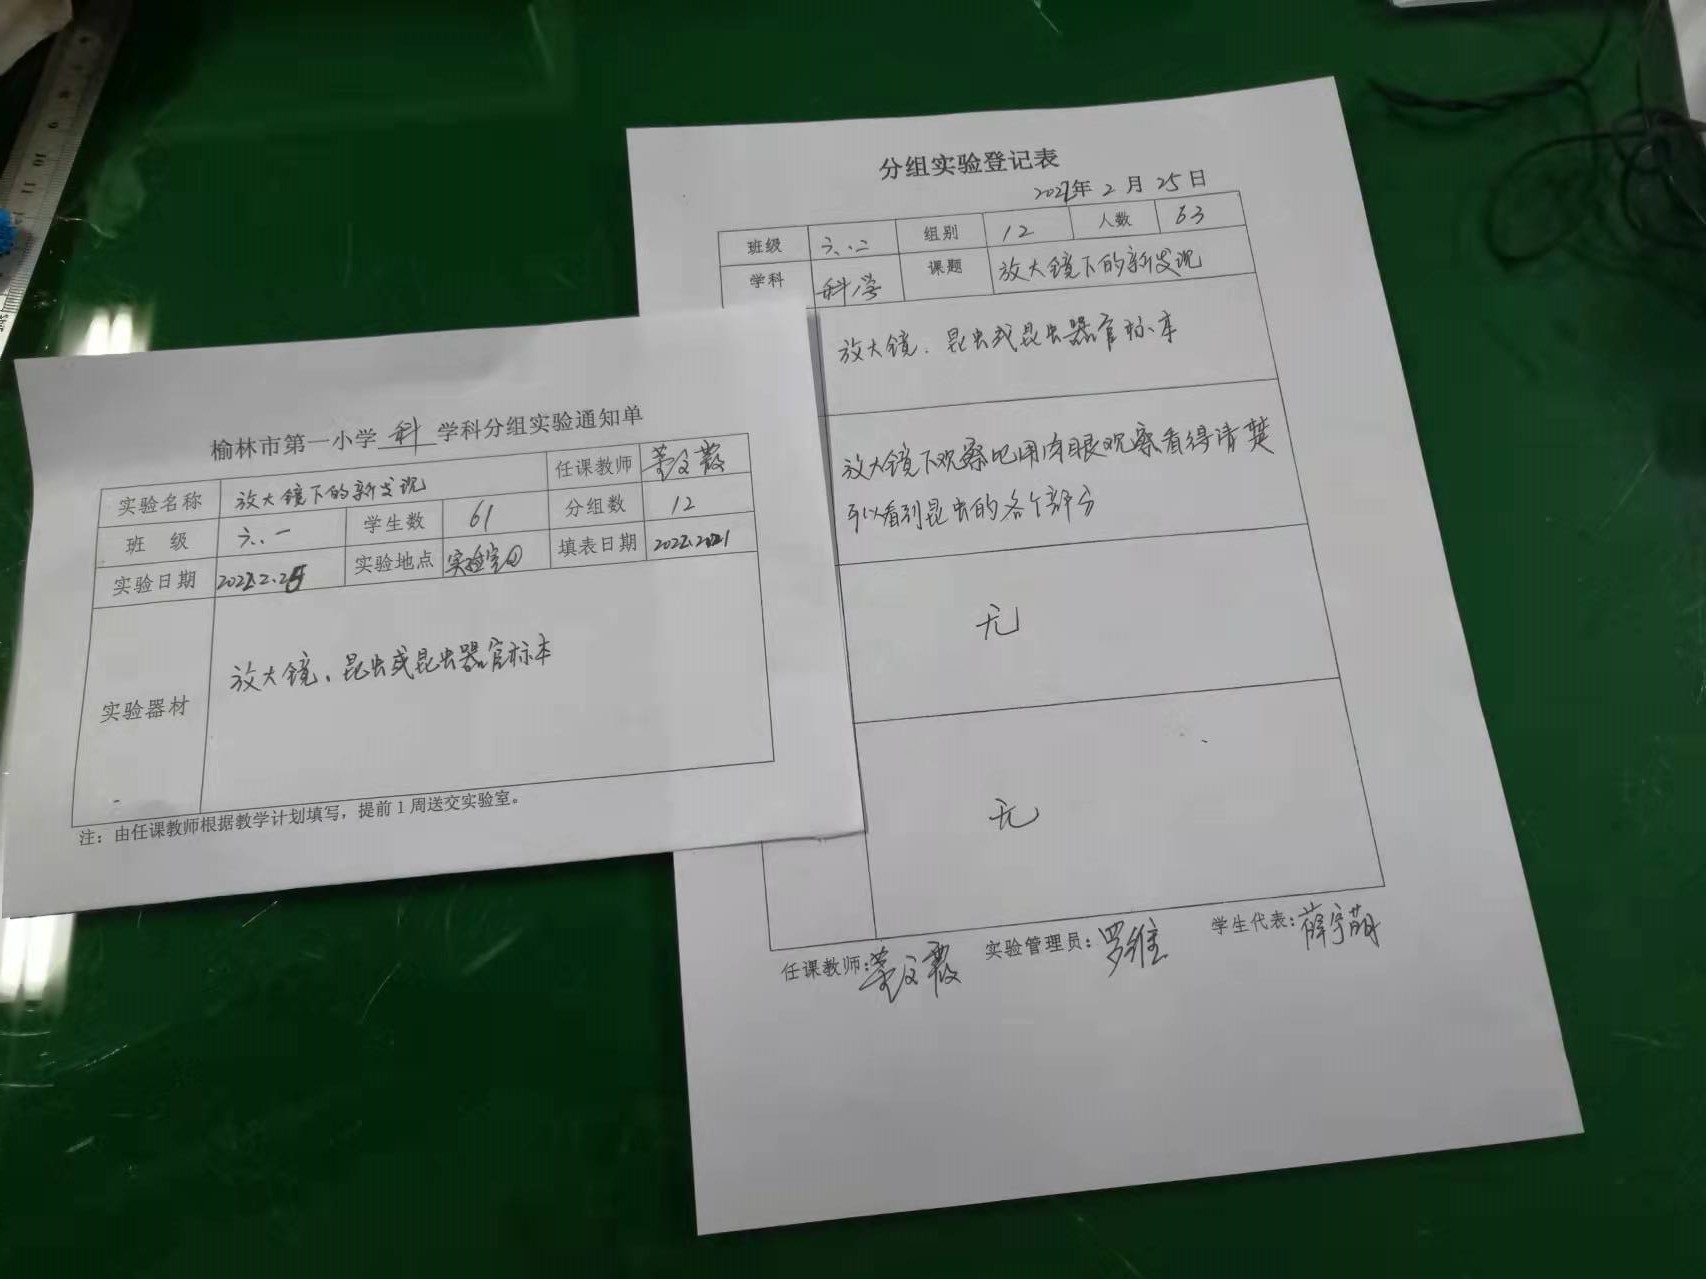 榆林市第一小学 科 学科分组实验通知单
实验名称 放大镜下的新发现 任课教师
班 级 六.一 学生数 61 分组数 12
实验日期 2022.2.25 实验地点 实验室 填表日期 2022.2021
实验器材 放大镜、昆虫或昆虫器官标本
注：由任课教师根据教学计划填写，提前1周送交实验室。
分组实验登记表
2022年 2 月 25 日
班级 六.二 组别 12 人数 63
学科 科学 课题 放大镜下的新发现
放大镜、昆虫或昆虫器官标本
放大镜下观察吧用肉眼观察看得清楚
可以看到昆虫的各个部分
无
无
任课教师: 实验管理员: 罗维 学生代表: 薛宇萌